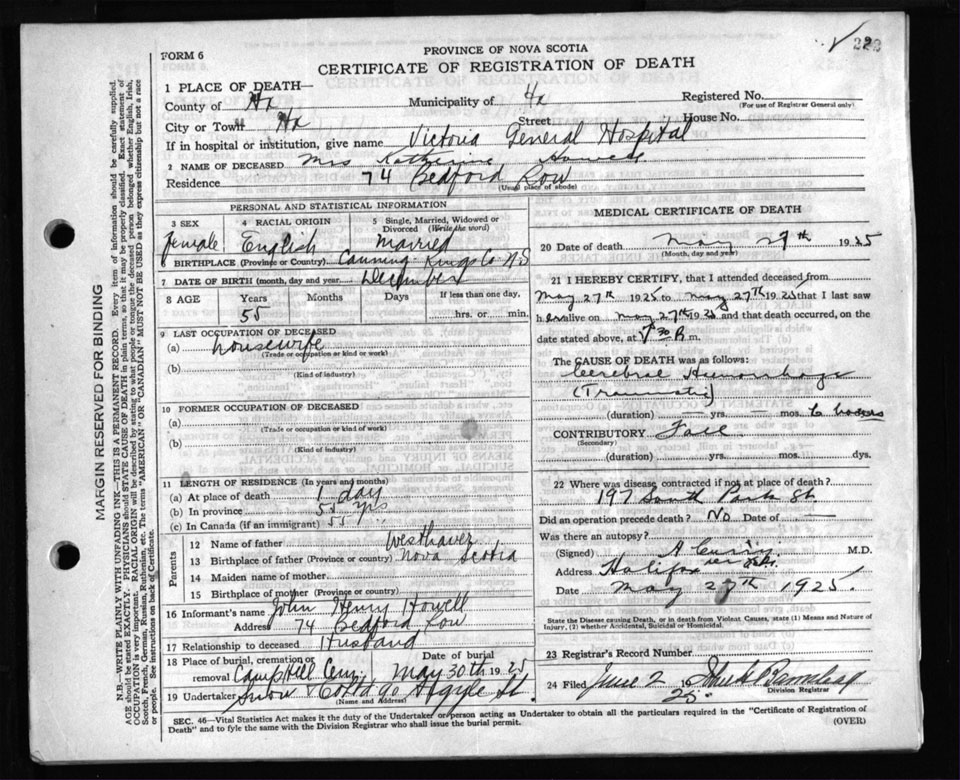 222
PROVINCE OF NOVA SCOTIA
FORM 6
CERTIFICATE OF REGISTRATION OF DEATH
1 PLACE OF DEATH—
County of Hx Municipality of Hx Registered No.
(For use of Registrar General only)
City or Town Hx Street House No.
If in hospital or institution, give name Victoria General Hospital
2 NAME OF DECEASED Mrs Katherine Howell
Residence 74 Bedford Row
(Usual place of abode)
PERSONAL AND STATISTICAL INFORMATION
3 SEX 4 RACIAL ORIGIN 5 Single, Married, Widowed or Divorced (Write the word)
Female English Married
BIRTHPLACE (Province or Country) Canning Kings Co N.S
7 DATE OF BIRTH (month, day and year) December
8 AGE Years Months Days If less than one day,
55 hrs. or min.
9 LAST OCCUPATION OF DECEASED
(a) housewife
(Trade or occupation or kind or work)
(b)
(Kind of industry)
10 FORMER OCCUPATION OF DECEASED
(a)
(Trade or occupation or kind of work)
(b)
(Kind of industry)
11 LENGTH OF RESIDENCE (In years and months)
(a) At place of death 1 day
(b) In province 55 yrs
(c) In Canada (if an immigrant) 55 yrs
Parents
12 Name of father Westhaver
13 Birthplace of father (Province or country) Nova Scotia
14 Maiden name of mother
15 Birthplace of mother (Province or country)
16 Informant's name John Henry Howell
Address 74 Bedford Row
17 Relationship to deceased Husband
18 Place of burial, cremation or removal Camp Hill Cem Date of burial May 30th 1925
19 Undertaker Snow & Co Ltd 90 Argyle St
(Name and Address)
MEDICAL CERTIFICATE OF DEATH
20 Date of death May 27th 1925
(Month, day and year)
21 I HEREBY CERTIFY, that I attended deceased from
May 27th 1925 to May 27th 1925 that I last saw
her alive on May 27th 1925 and that death occurred, on
date stated above, at 30 P. m.
The CAUSE OF DEATH was as follows:
Cerebral Hemorrhage
(Traumatic)
(duration) — yrs. — mos. 6
CONTRIBUTORY Fall
(Secondary)
(duration) yrs. mos. dys.
22 Where was disease contracted if not at place of death?
197 South Park St.
Did an operation precede death? No Date of —
Was there an autopsy?
(Signed) M.D.
Address Halifax
Date May 27th 1925.
State the Disease causing Death, or in death from Violent Causes, state (1) Means and Nature of
Injury, (2) whether Accidental, Suicidal or Homicidal.
23 Registrar's Record Number
24 Filed June 2 1925
Division Registrar
SEC. 46—Vital Statistics Act makes it the duty of the Undertaker or person acting as Undertaker to obtain all the particulars required in the "Certificate of Registration of
Death" and to fyle the same with the Division Registrar who shall issue the burial permit.
(OVER)
MARGIN RESERVED FOR BINDING
N.B.—WRITE PLAINLY WITH UNFADING INK—THIS IS A PERMANENT RECORD. Every item of information should be carefully supplied.
AGE should be stated EXACTLY. PHYSICIANS should STATE CAUSE OF DEATH in plain terms, so that it may be properly classified. Exact statement of
OCCUPATION is very important. RACIAL ORIGIN will be described by stating to what people or tongue the deceased person belonged whether English, Irish,
Scotch, French, German, Russian, Ruthenian, etc. The terms "AMERICAN" OR "CANADIAN" MUST NOT BE USED as they express citizenship but not a race
or people. See instructions on back of Certificate.